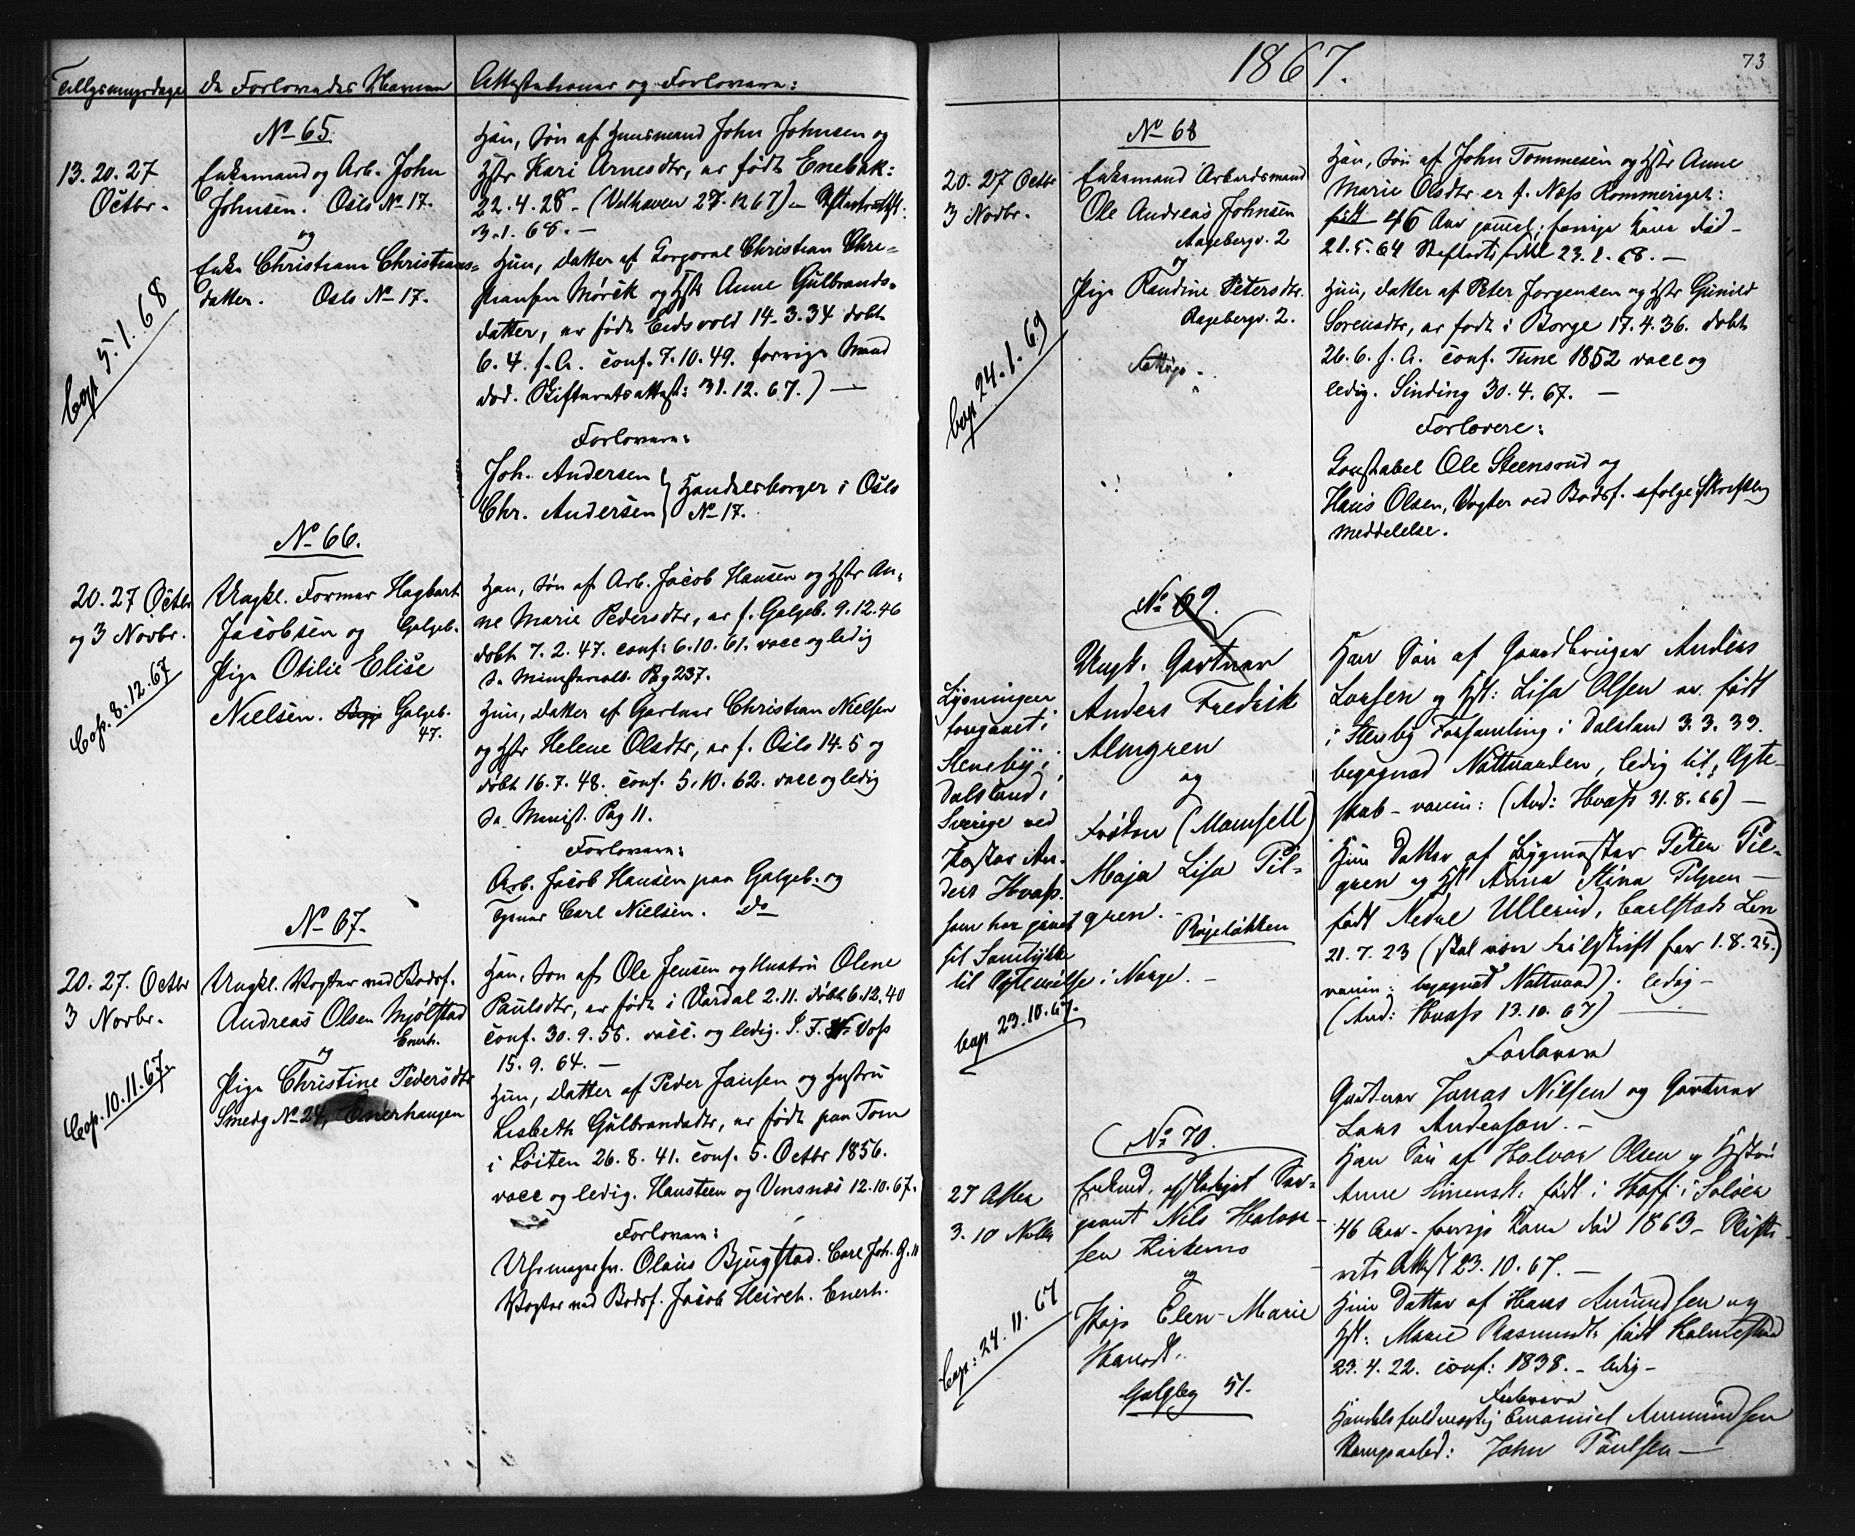 Tillysningsdage
De Forlovedes Navne
Attestationer og Forlovere:
No 65.
13. 20. 27
Octbr.
Enkemand og Arb. John
Johnsen. Oslo No 17.
og
Enke Christiane Christians=
datter. Oslo No 17.
Cop 5.1.68
Han, Søn af Huusmand John Johnsen og
Hstr Kari Arnesdtr, er født Enebak:
22.4.28 - (Velhaven 27.12 67) -
3.1.68. -
Hun, Datter af Corporal Christian Chri=
stiansen Mørck og Hstr Anne Gulbrands=
datter, er født Eidsvold 14.3.34 døbt
6.4. s.A. conf. 7.10.49. forrige Mand
død. Skifteretsattest: 31.12.67.) -
Forlovere:
Joh. Andersen
Chr. Andersen
Handelsborger i Oslo
No 17.
No 66.
20. 27 Octbr
og 3 Novbr.
Cop. 8.12.67
Ungkl. Former Hagbart
Jacobsen og Galgeb.
Pige Otilie Elise
Nielsen. Galgeb.
47.
Han, Søn af Arb. Jacob Hansen og Hstr An=
ne Marie Pedersdtr, er f. Galgeb. 9.12.46
døbt 7.2.47. conf: 6.10.61. vacc og ledig
Se Ministerialb. Pag 237.
Hun, Datter af Gartner Christian Nielsen
og Hstr Helene Olsdtr, er f. Oslo 14.5 og
døbt 16.7.48. conf. 5.10.62. vacc og ledig
Se Minist. Pag 11.
Forlovere:
Arb. Jacob Hansen paa Galgeb. og
Carl Nielsen. Do
No 67.
20. 27. Octbr
3 Novbr.
Cop. 10.11.67.
Ungkl. Vogter ved Bodsf.
Andreas Olsen Mjølstad
Enerh.
og
Pige Christine Pedersdtr
Smedg No 24, Enerhaugen
Han, Søn af Ole Jensen og Hustru Olene
Paulsdtr, er født i Vardal 2.11. døbt 6.12.40
conf. 30.9.55. vacc. og ledig. J. F. Voss
15.9.64. -
Hun, Datter af Peder Jansen og Hustru
Lisbeth Gulbrandsdtr, er født paa Tom
i Løiten 26.8.41. conf. 5. Octbr 1856.
vacc og ledig. Hansteen og Vinsnæs 12.10.67.
Forlovere:
Uhrmagersv. Olaus Bjugstad. Carl Joh. G. 11
Vogter ved Bodsf. Jacob Heirch. Enerh.
1867.
73
No 68
20. 27 Octbr
3 Novbr.
Cop 24.1.69
Enkemand Arbeidsmand
Ole Andreas Johnsen
Aagebergv. 2
og
Pige Randine Petersdtr.
Aagebergv. 2.
Han, Søn af John Tommesen og Hstr Anne
Marie Olsdtr er f. Næss Rommeriget:
født 46 Aar gammel; forrige Kone død
21.5.64 23.1.68. -
Hun, Datter af Peter Jorgensen og Hstr Gunild
Sorensdtr, er født i Borge 17.4.36. døbt
26.6. s.A. conf. Tune 1852 vacc og
ledig. Sinding 30.4.67. -
Forlovere:
Constabel Ole Steensrud og
Hans Olsen, Vogter ved Bodsf. ifølge skriftlig
Meddelelse.
No 69.
Lysningen
foregaaet i
Steneby i
Dalsland i
Sverige ved
Pastor An=
ders Hvass.
som har givet
sit Samtykke
til Ægtevielse i Norge. -
Cop 23.10.67.
Ungk. Gartner
Anders Fredrik
Almgren
og
Frøken (Mamsell)
Maja Lisa Pil=
gren.
Røgeløkken
Han Søn af Gaardbruger Anders
Larsen og Hst: Lisa Olsen er født
i Steneby Forsamling i Dalsland 3.3.39.
begaaet Nattvarden, ledig til Ægte=
skab - vaccin: (And: Hvass 31.8.66) -
Hun Datter af Bygmester Peter Pil=
gren og Hst Anna Stina Pilgren -
født Nedre Ullerud, Carlstads Len
21.7.23 (skal være feilskrift for 1.8.25.)
vaccin: begaaet Nattvard). ledig -
(And: Hvass 13.10.67) -
Forlovere
Gartner Jonas Nilsen og Gartner
Lars Anderson. -
No 70.
27 Octbr
3. 10 Novbr
Cop: 24.11.67
Enkemd, afskediget Ser=
geant Nils Halvor=
sen Kirkemo
og
Pige Elen Marie
Hansdt.
Galgbg 51.
Han Søn af Halvor Olsen og Hstru
Anne Simensd: født i Hoff i Soløer
46 Aar - forrige Kone død 1863 - Skifte=
rets Attest 23.10.67. -
Hun Datter af Hans Amundsen og
Hst: Marie Rasmusdtr født Holmestrand
23.4.22. conf: 1838. - ledig -
Forlovere
Handelsfuldmægtig Emanuel Ammundsen
John Paulsen -